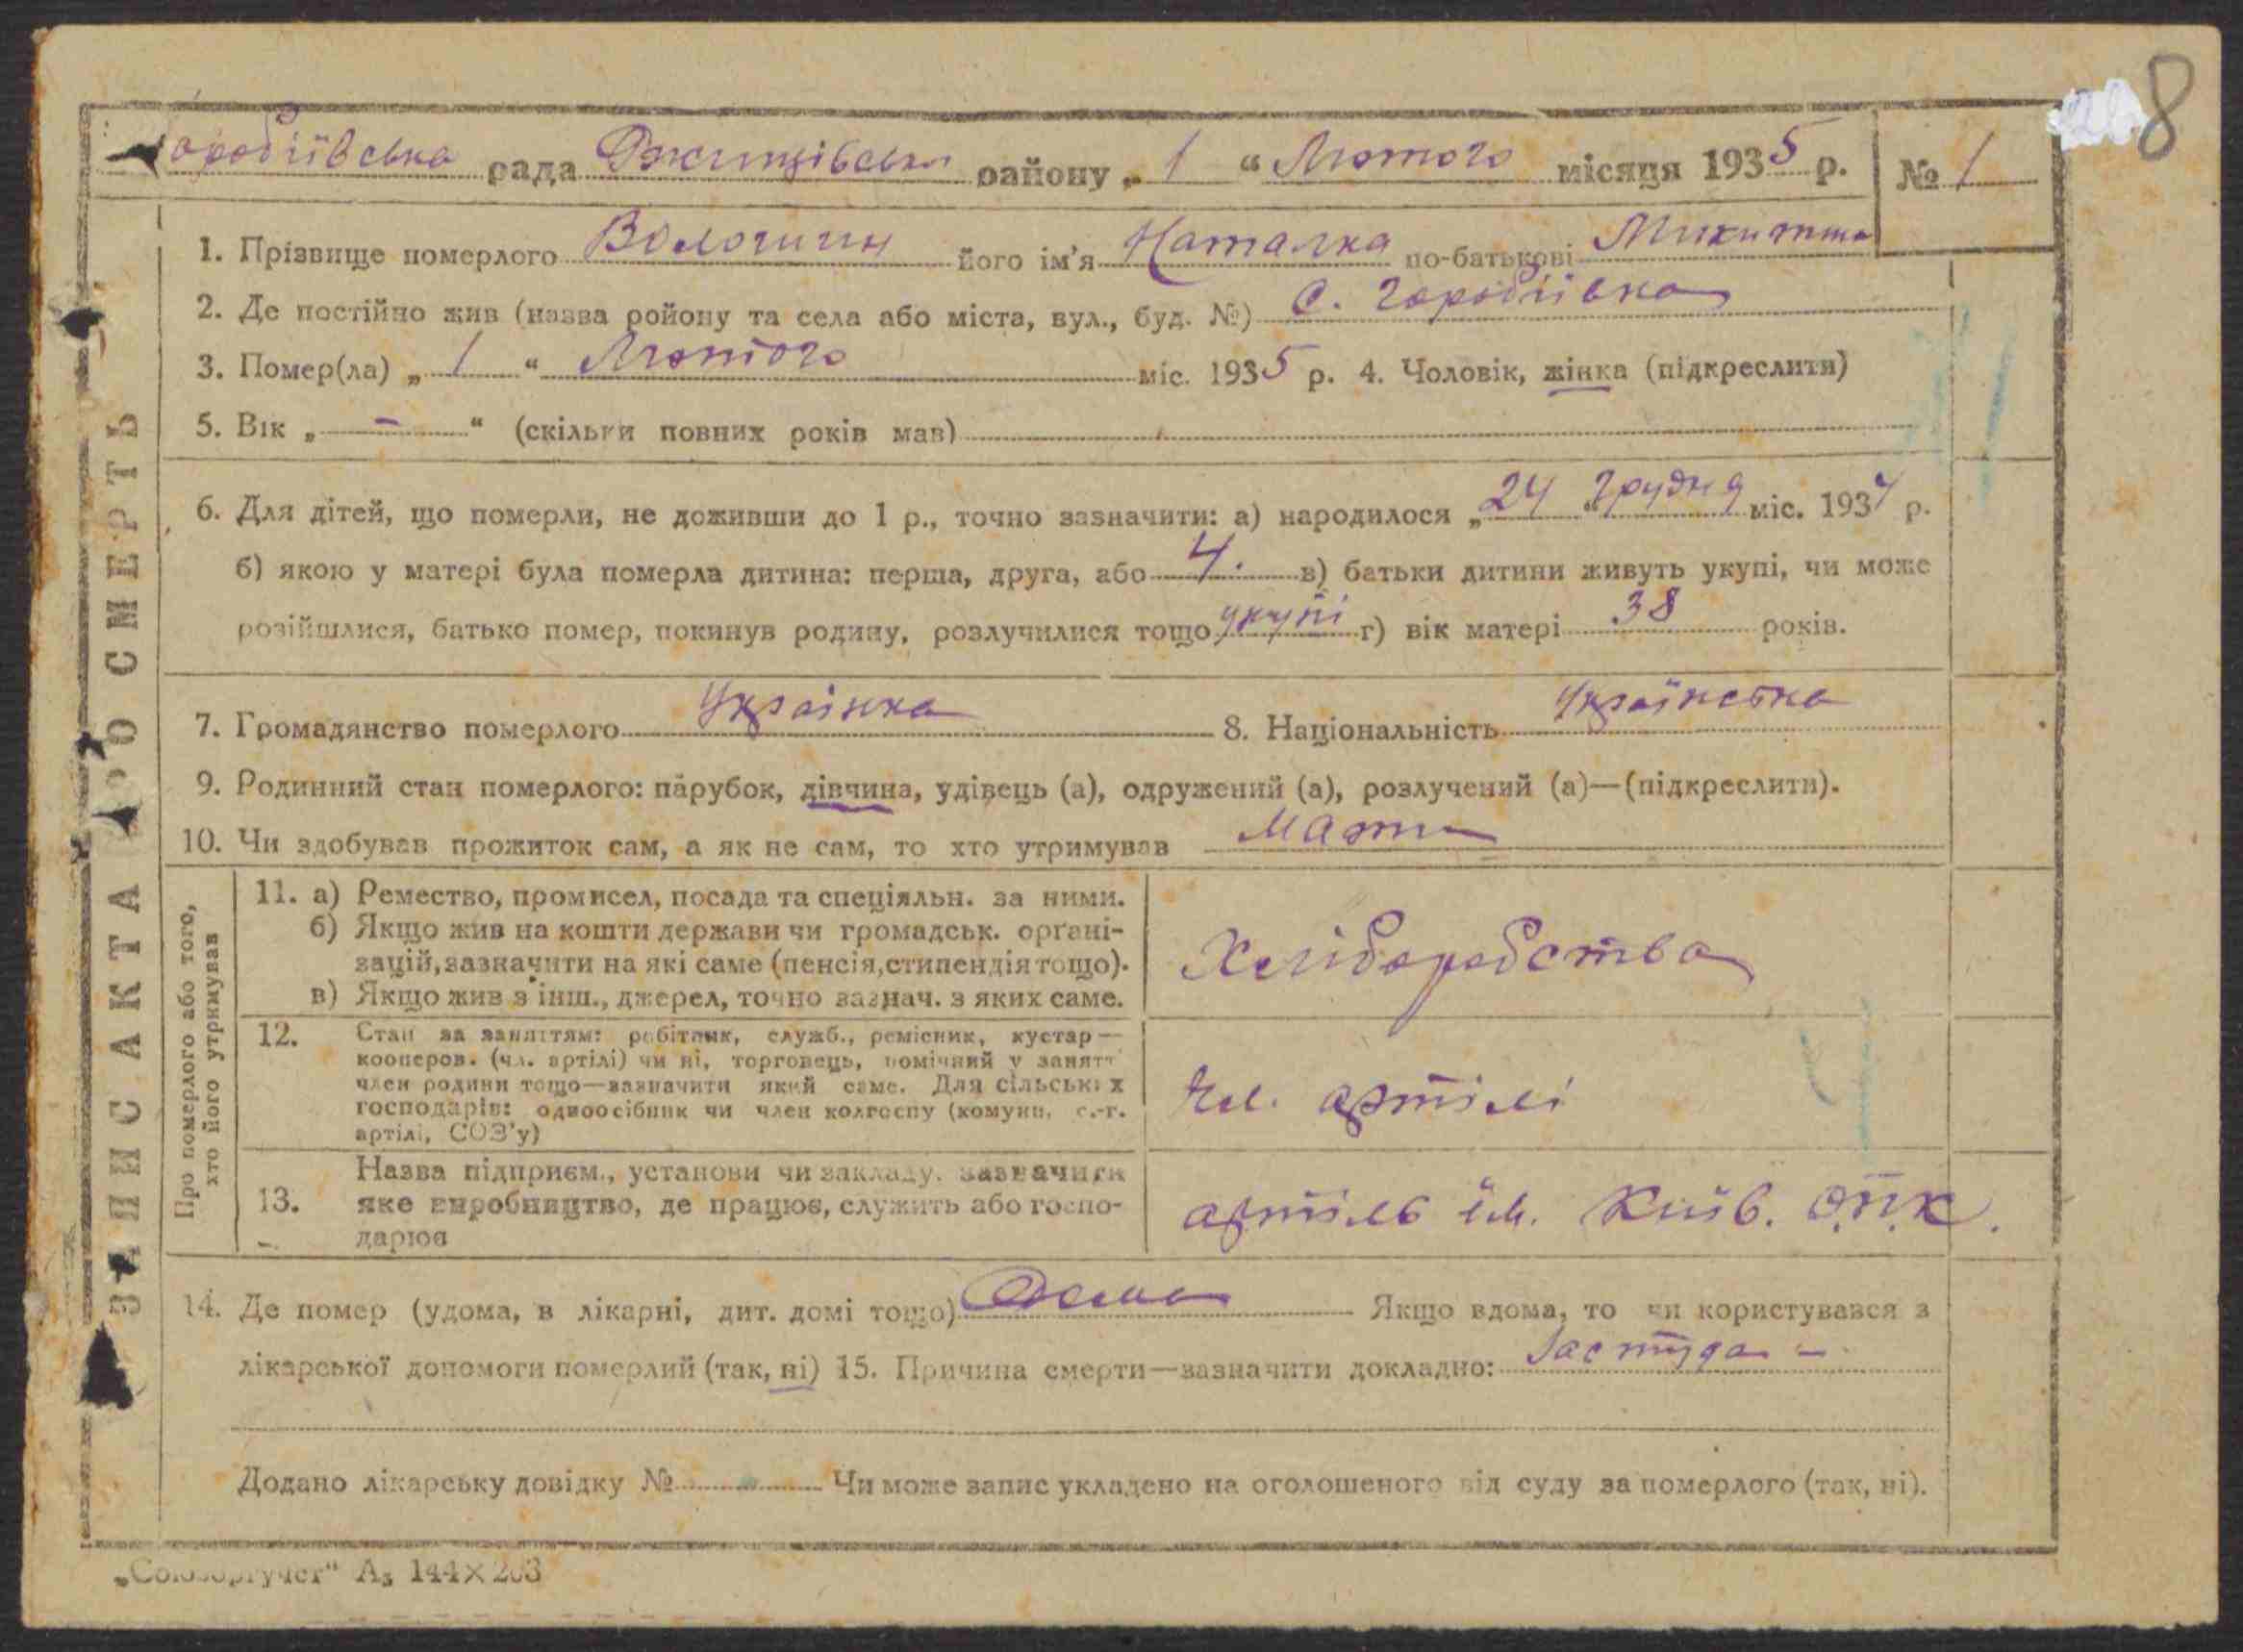 8
Горобіївська рада Ржищівськ району „ 1 “ Лютого місяця 1935 р. № 1
1. Прізвище померлого Вологин його ім'я Наталка по-батькові Микитина
2. Де постійно жив (назва ройону та села або міста, вул., буд. №) с. Горобіївка
3. Помер(ла) „ 1 “ Лютого міс. 1935 р. 4. Чоловік, жінка (підкреслити)
5. Вік „ – “ (скільки повних років мав)
6. Для дітей, що померли, не доживши до 1 р., точно зазначити: а) народилося „ 24 “ Грудня міс. 1934 р.
б) якою у матері була померла дитина: перша, друга, або 4. в) батьки дитини живуть укупі, чи може
розійшлися, батько помер, покинув родину, розлучилися тощо укупі г) вік матері 38 років.
7. Громадянство померлого Українка 8. Національність Українська
9. Родинний стан померлого: парубок, дівчина, удівець (а), одружений (а), розлучений (а)—(підкреслити).
10. Чи здобував прожиток сам, а як не сам, то хто утримував Мати
ЗАПИС АКТА ПРО СМЕРТЬ
Про померлого або того, хто його утримував
11. а) Ремество, промисел, посада та спеціяльн. за ними.
б) Якщо жив на кошти держави чи громадськ. орґані-
зацій, зазначити на які саме (пенсія, стипендія тощо).
в) Якщо жив з інш., джерел, точно зазнач. з яких саме.
Хліборобство
12. Стан за заняттям: робітник, служб., ремісник, кустар—
кооперов. (чл. артілі) чи ні, торговець, помічний у занятт
член родини тощо—зазначити який саме. Для сільських
господарів: одноосібник чи член колгоспу (комуни, с.-г.
артілі, СОЗ'у)
Чл. артілі
13. Назва підприєм., установи чи закладу. зазначити
яке виробництво, де працює, служить або госпо-
дарює
артіль ім. Київ. О.П.К.
14. Де помер (удома, в лікарні, дит. домі тощо) Дома Якщо вдома, то чи користувався з
лікарської допомоги померлий (так, ні) 15. Причина смерти—зазначити докладно: Застуда –
Додано лікарську довідку № Чи може запис укладено на оголошеного від суду за померлого (так, ні).
„Союзоргучет“ А₅ 144×203